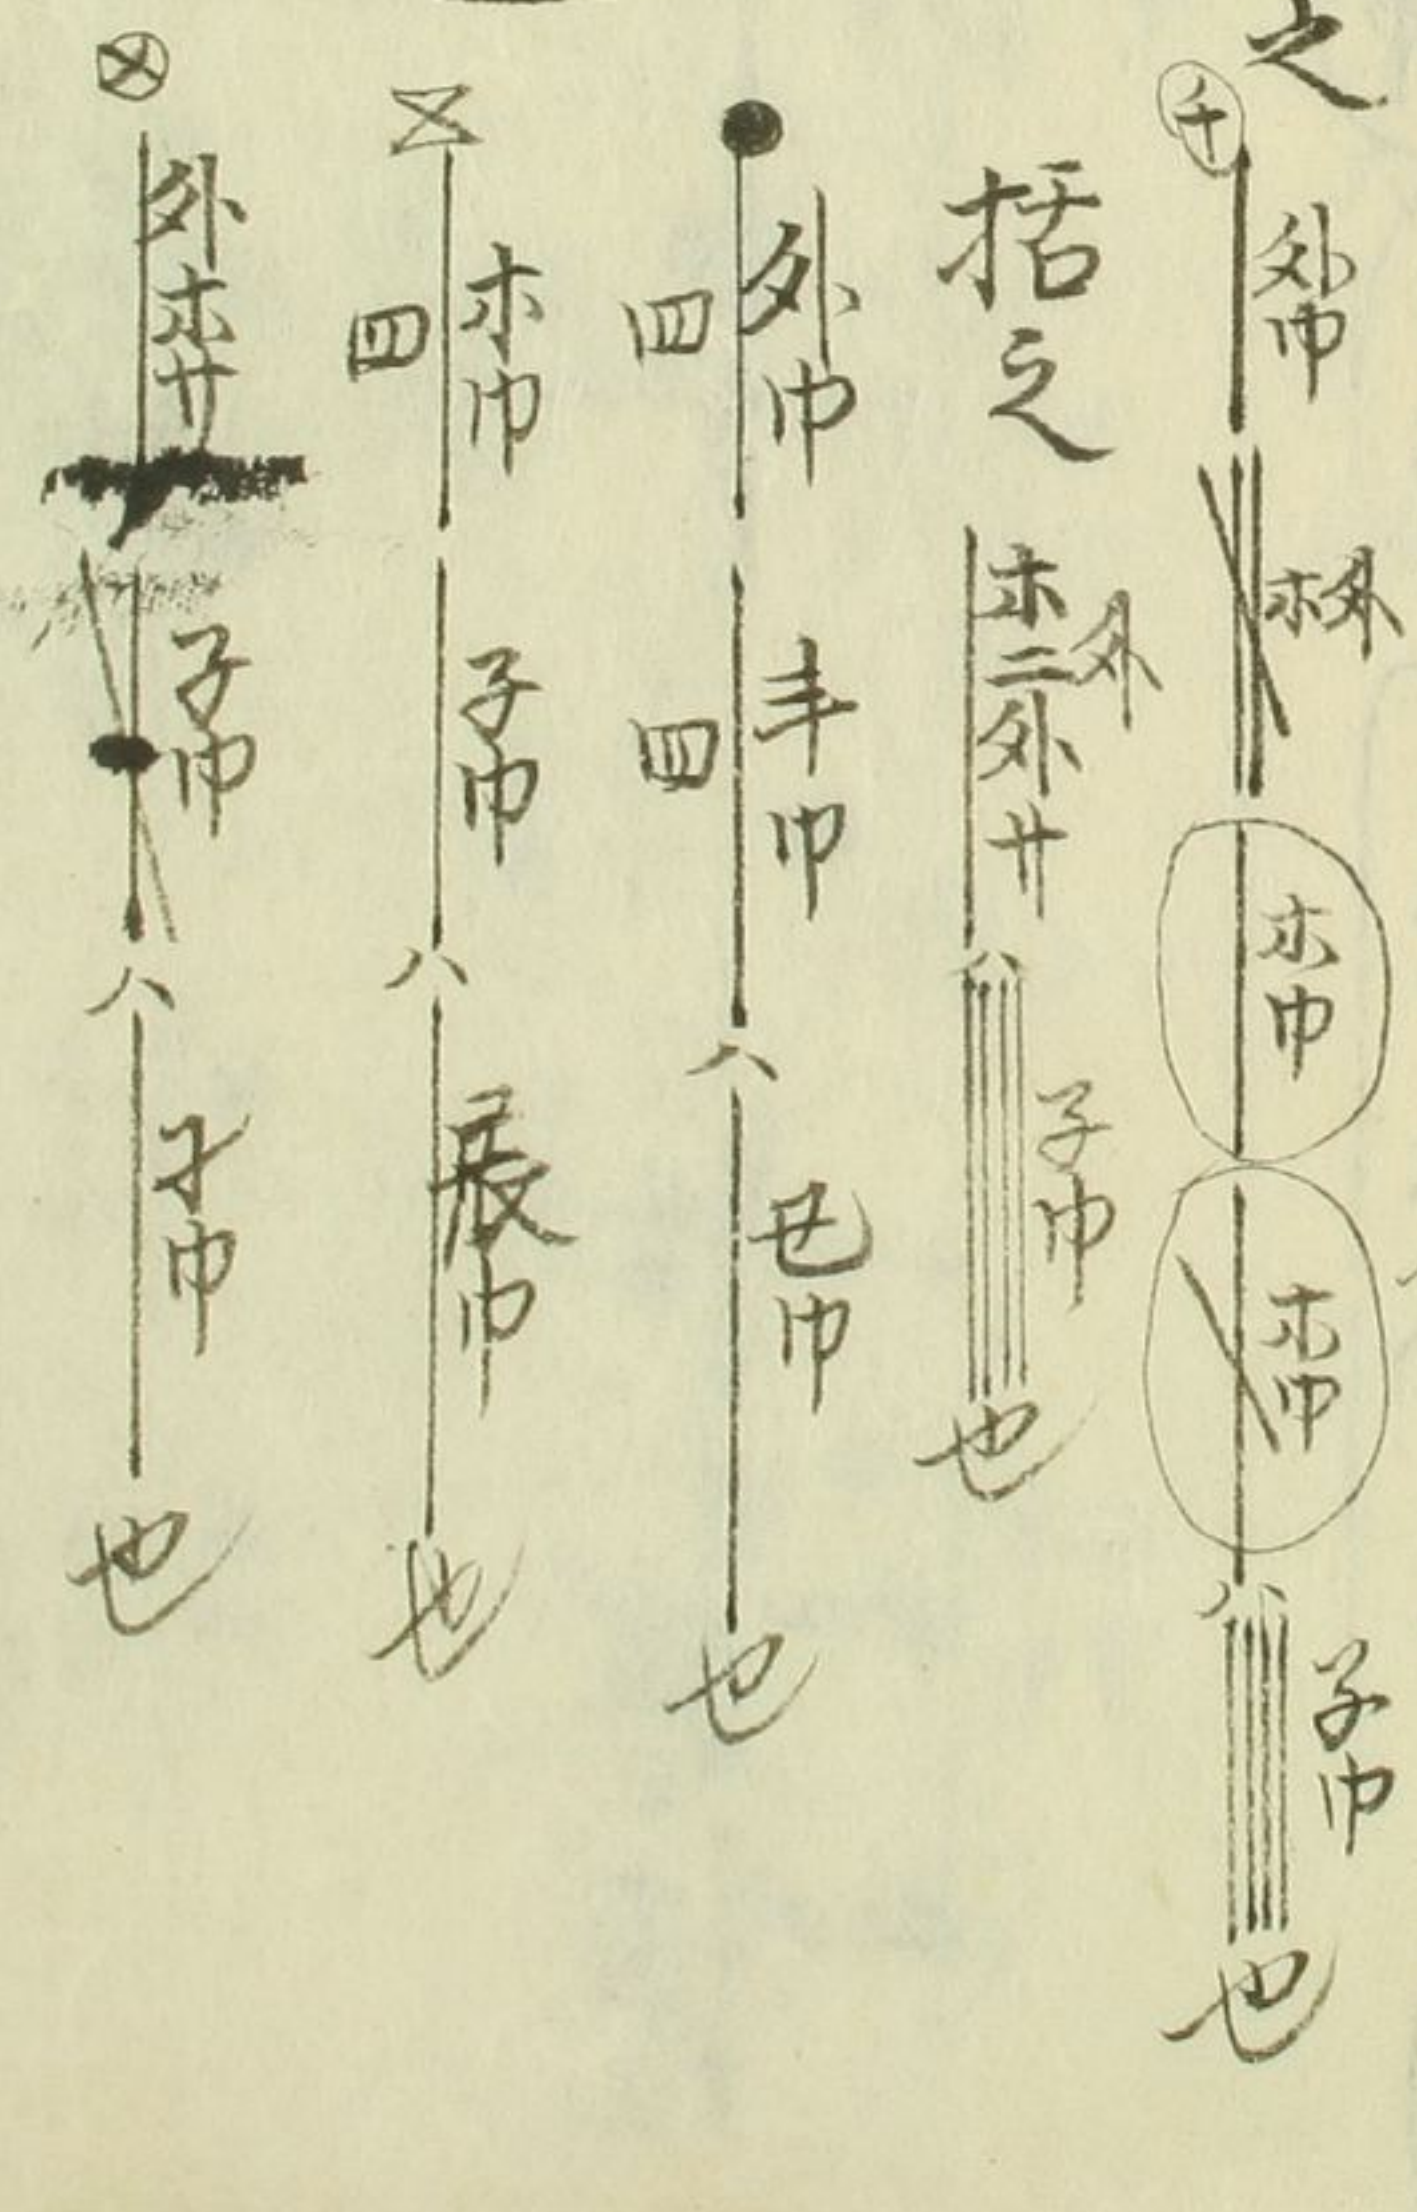 之
千 外巾 朩外 朩巾 朩巾 八 子巾 也
括之 朩二外廾 外 八 子巾 也
外巾 四 丰巾 四 八 丑巾 也
朩巾 四 子巾 八 辰巾 也
外朩廾 子巾 八 子巾 也